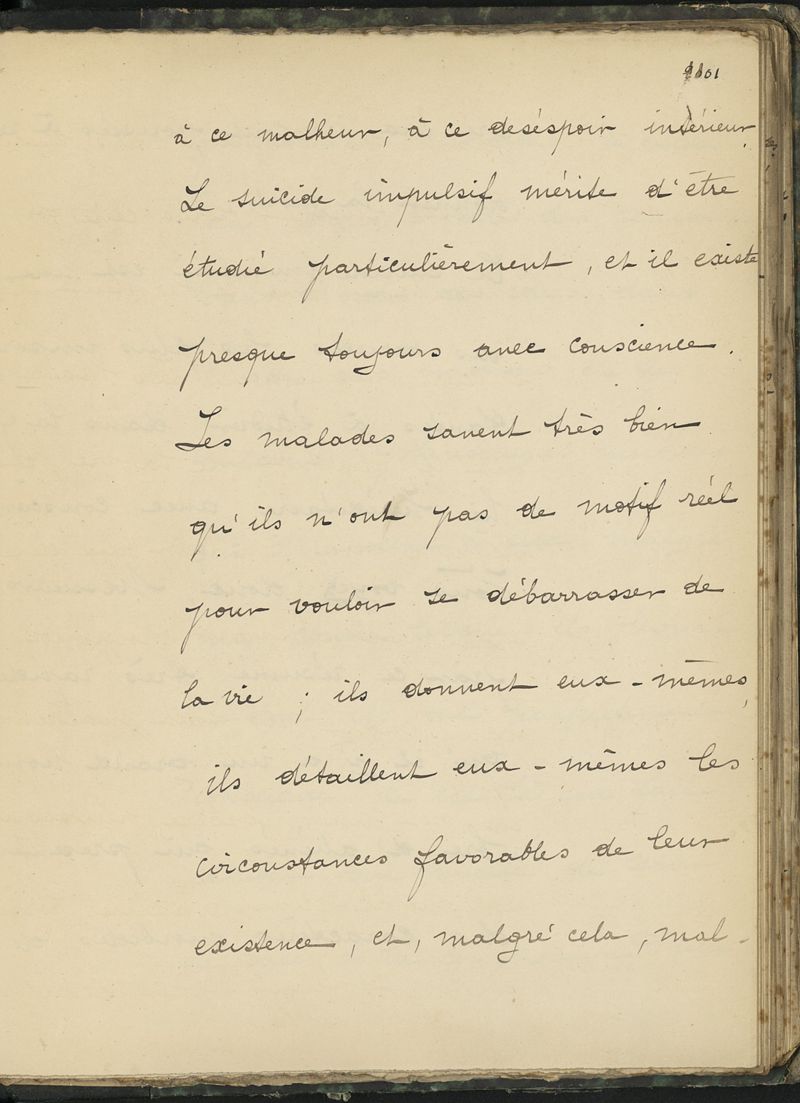 à ce malheur, à ce deséspoir intérieur.
Le suicide impulsif mérite d'être
étudié particulièrement, et il existe
presque toujours avec conscience.
Les malades savent très bien
qu'ils n'ont pas de motif réel
pour vouloir se débarrasser de
la vie ; ils donnent eux-mêmes,
ils détaillent eux-mêmes les
circonstances favorables de leur
existence, et, malgré cela, mal-